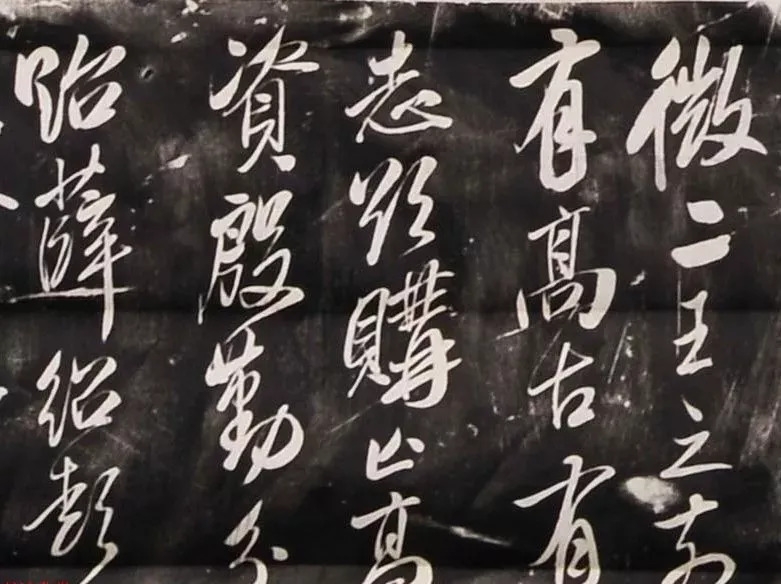 微二王之前
有高古有
志欲購高
資殷勤分
貽薛紹彭